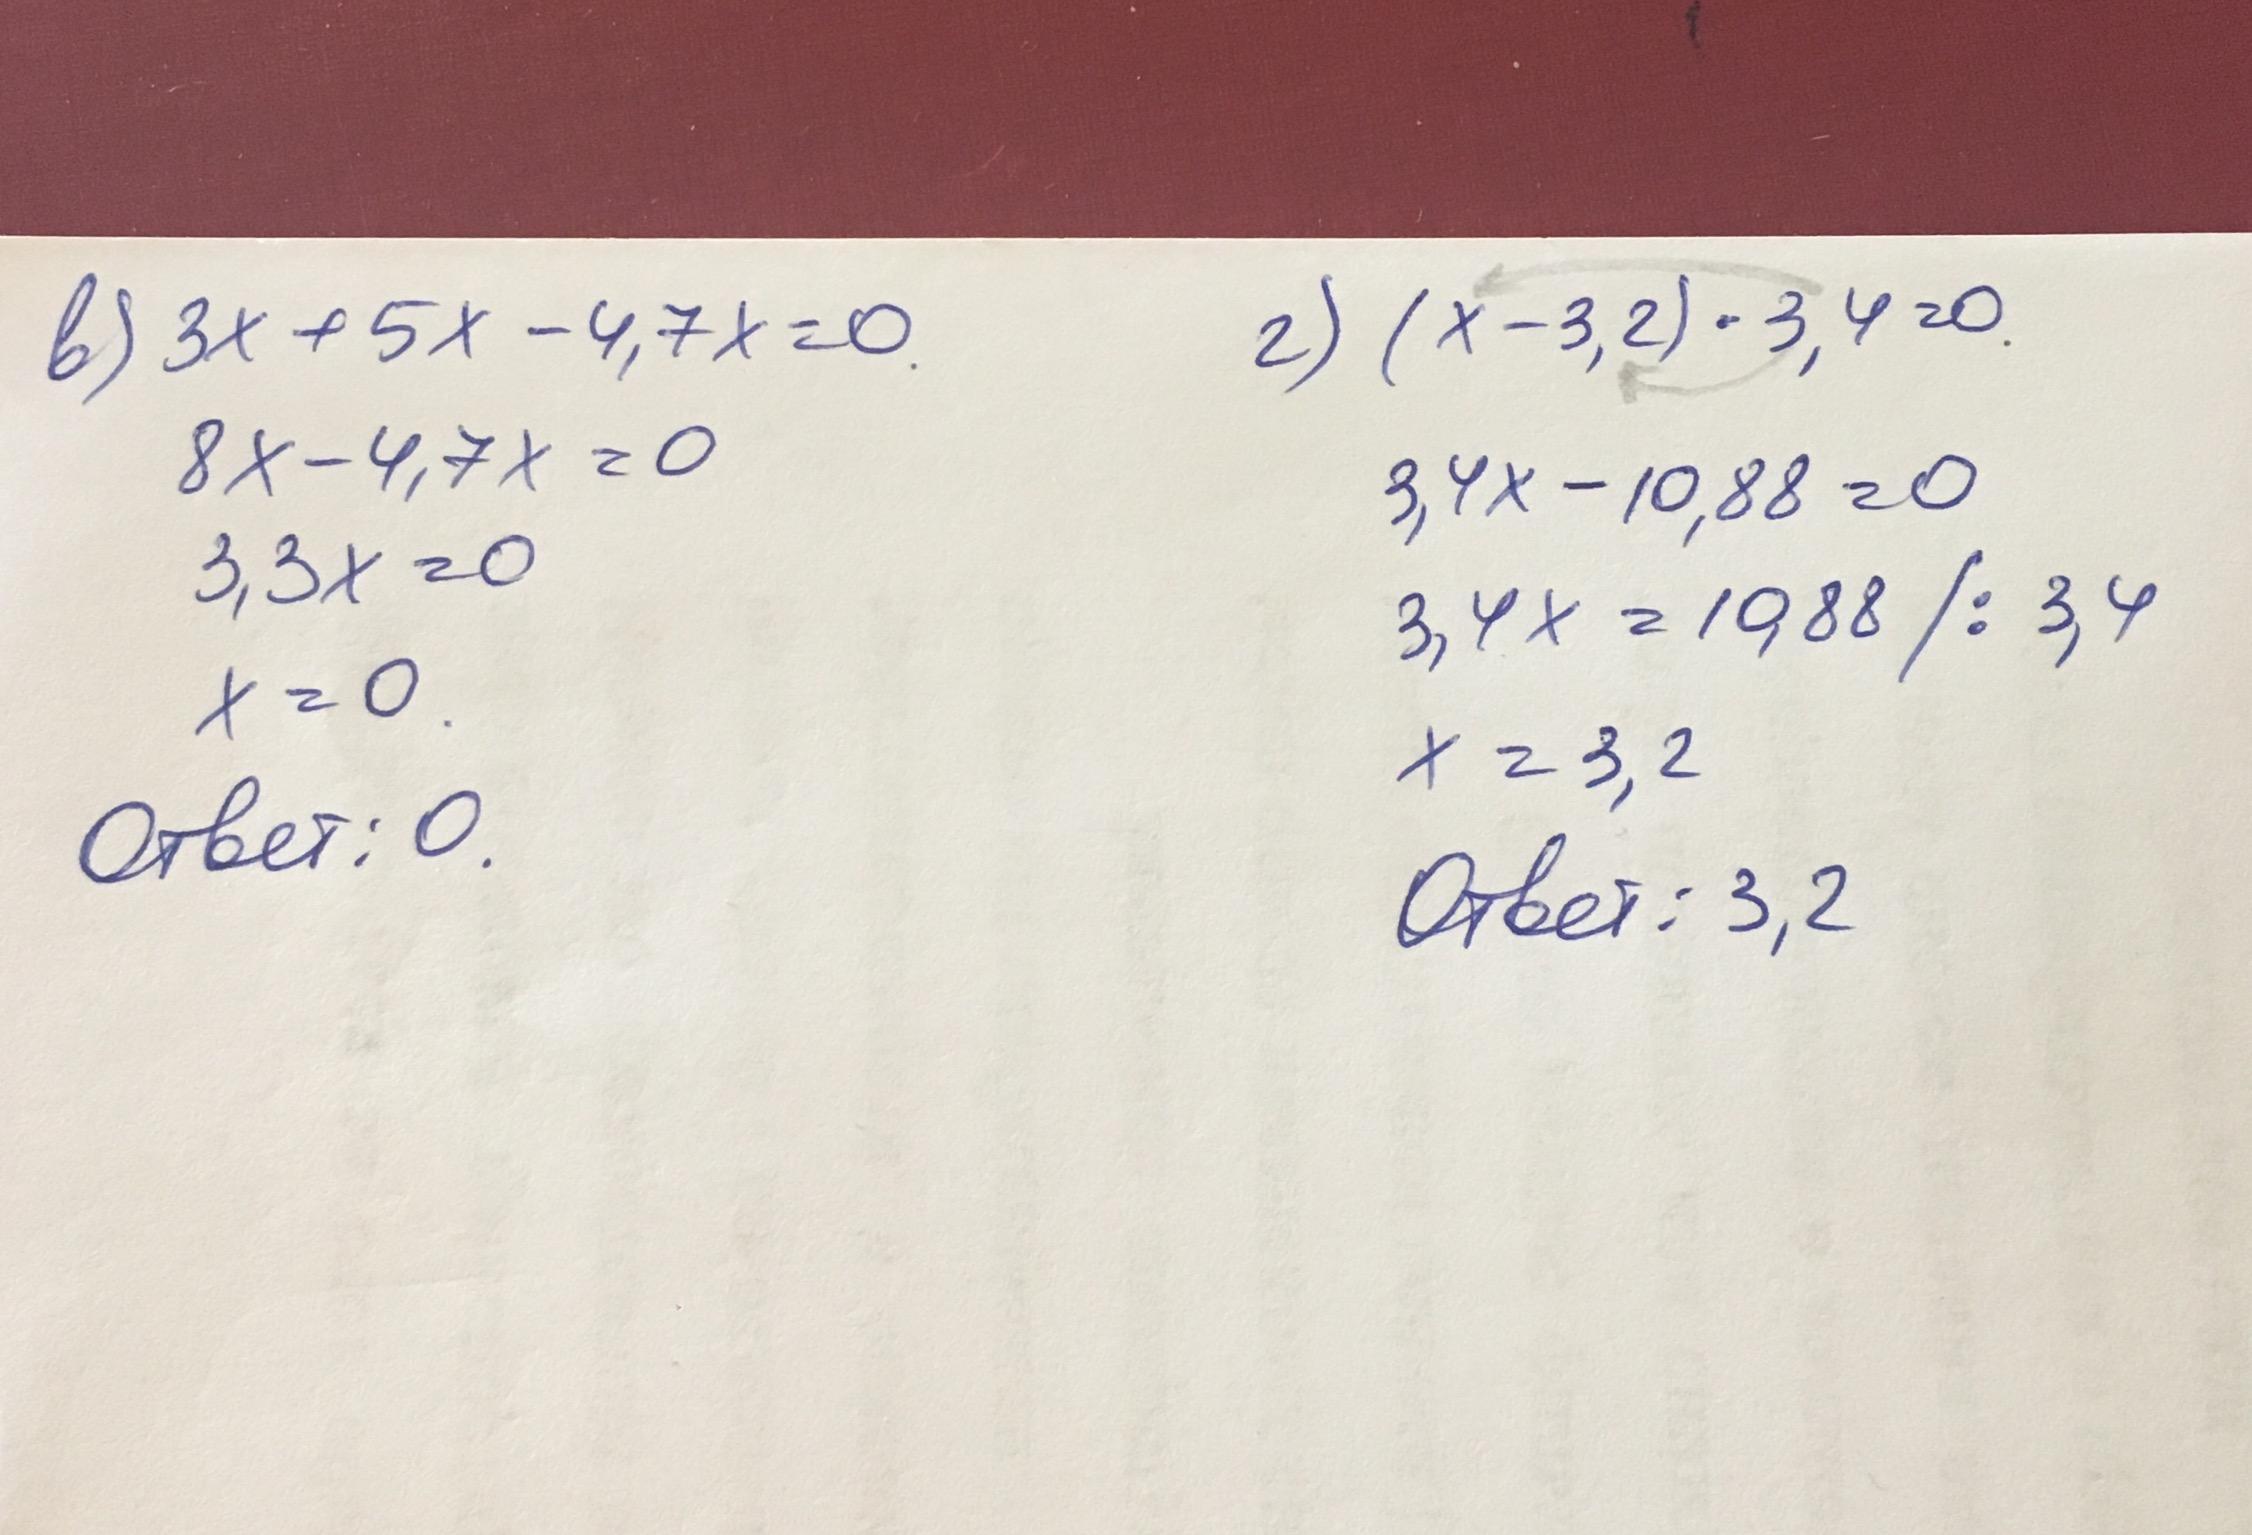 в) 3x + 5x - 4,7x = 0.
8x - 4,7x = 0
3,3x = 0
x = 0.
Ответ: 0.
г) (x - 3,2) · 3,4 = 0.
3,4x - 10,88 = 0
3,4x = 10,88 /: 3,4
x = 3,2
Ответ: 3,2